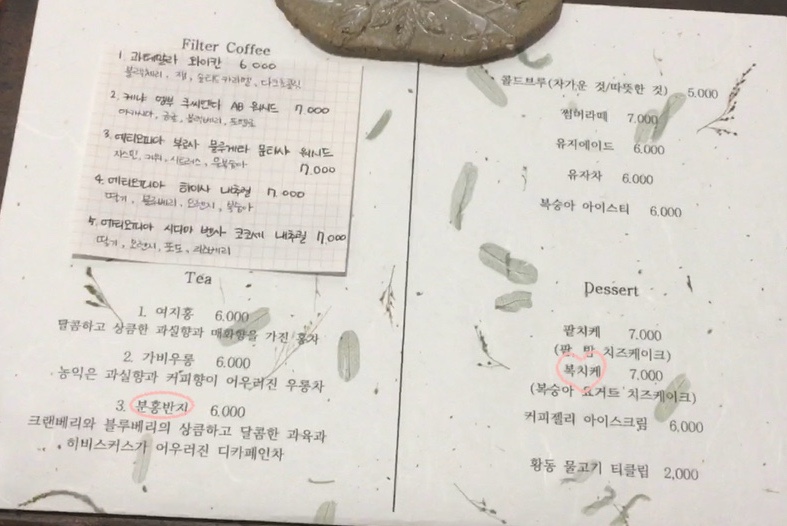 Filter Coffee
1. 과테말라 와이칸 6.000
블랙체리, 잼, 솔티드카라멜, 다크초콜릿
2. 케냐 AB 워시드 7.000
아카시아, 블랙베리,
3. 에티오피아 워시드
자스민, 시트러스,
7.000
4. 에티오피아 내추럴 7.000
딸기, 블루베리, 오렌지, 복숭아
5. 에티오피아 시다마 벤사 내추럴 7.000
딸기, 오렌지, 포도, 라즈베리
Tea
1. 여지홍 6.000
달콤하고 상큼한 과실향과 매화향을 가진 홍차
2. 가비우롱 6.000
농익은 과실향과 커피향이 어우러진 우롱차
3. 분홍반지 6.000
크랜베리와 블루베리의 상큼하고 달콤한 과육과
히비스커스가 어우러진 디카페인차
콜드브루(차가운 것/따뜻한 것) 5.000
썸머라떼 7.000
유지에이드 6.000
유자차 6.000
복숭아 아이스티 6.000
Dessert
팥치케 7.000
(팥 밤 치즈케이크)
복치케 7.000
(복숭아 요거트 치즈케이크)
커피젤리 아이스크림 6.000
황동 물고기 티클립 2,000